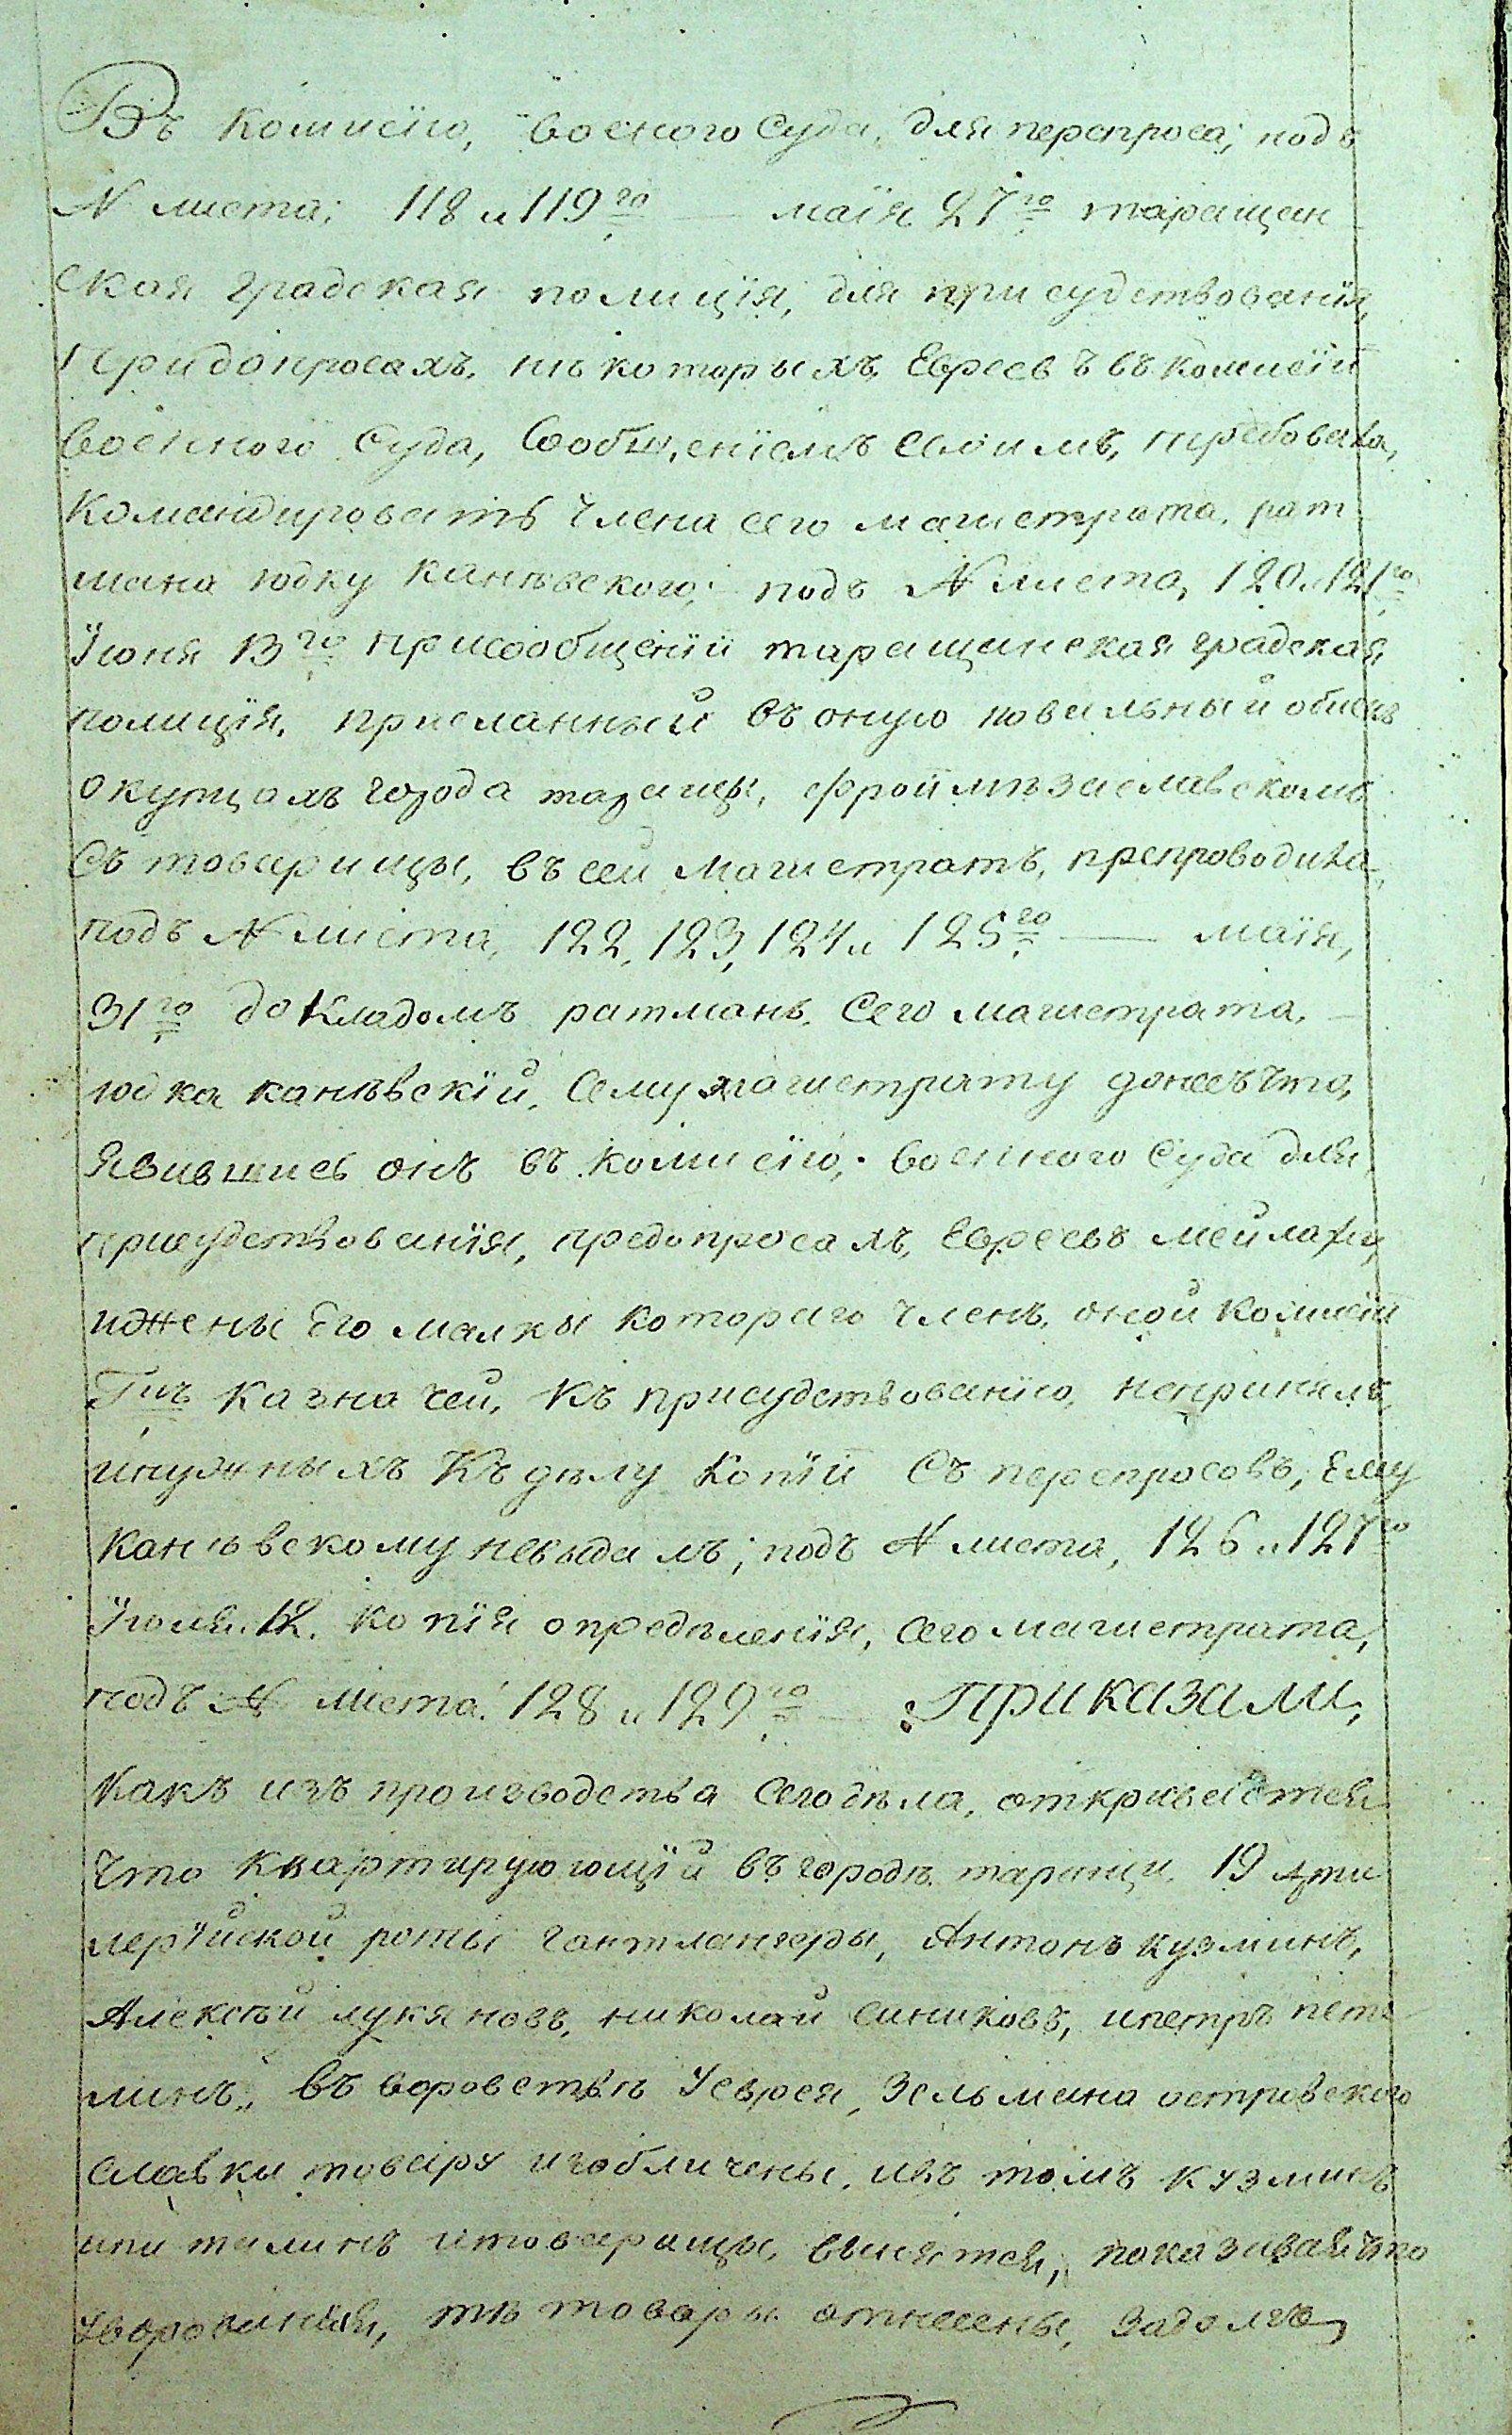 Въ комисїю, военого Суда, для перспроса; подъ
N листа; 118 и 119го — маїя 27го таращан
ская градская полицїя, для присудствованїя,
придопросахъ, нѣкоторыхъ Евреевъ въ комисїи
военного Суда, Сообщенїемъ своимъ, требовала,
Командировать члена сего магистрата, рат
мана юдку каневского; подъ N листа, 120 и 121го
Їюня 13го присообщенїи таращинская градская
полицїя, присланный въ оную повальный обискъ
окупцахъ города таращи, фроймѣ заславскомъ
Съ товарищы, въ сей магистратъ, препроводила,
подъ N листа, 122, 123, 124 и 125го — маїя,
31го докладомъ ратманъ, Сего магистрата,
юдка канѣвскїй, Сему магистрату донесъ что,
Явившись онъ въ комисїю, военного Суда для,
присудствованїя, предопросахъ, Евреевъ мейлаху,
иджены Его малки котораго членъ, оной комисїи
Гнъ казначей, къ присудствованїю, непринялъ,
инужныхъ Къ дѣлу Копїй Съ перепросовъ, Ему
канѣвскому невыдалъ; подъ N листа, 126 и 127го
Їюля 12. копїя опредѣленїя, Сего магистрата,
подъ N листа: 128 и 129го — Приказали,
Какъ изъ производства Сего дѣла, откривается
что квартируюющїй въ городѣ таращи, 19 Арти
лерїйской роты гантлангеры, Антонъ кузминъ,
Алексѣй лукяновъ, николай синиковъ, ипетръ пете
минъ, въ воровствѣ Уеврея, Зельмана островского
Славки товару изобличены, ивъ томъ кузминъ
ипитиминъ итоварищы, винятся, показивая что
Уворованїя, тѣ товары отнесены, Задолгъ